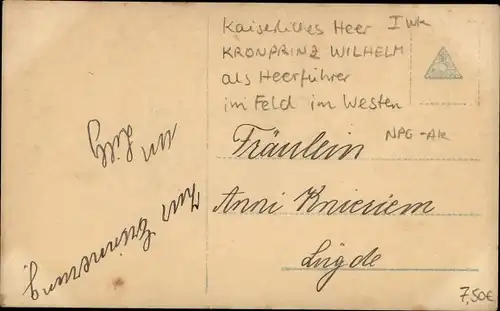 Kaiserliches Heer I WK
KRONPRINZ WILHELM
als Heerführer
im Feld im Westen
NPG-AK
Fräulein
Anni Knieriem
Lügde
Zur Erinnerung
an Lilly
7,50€